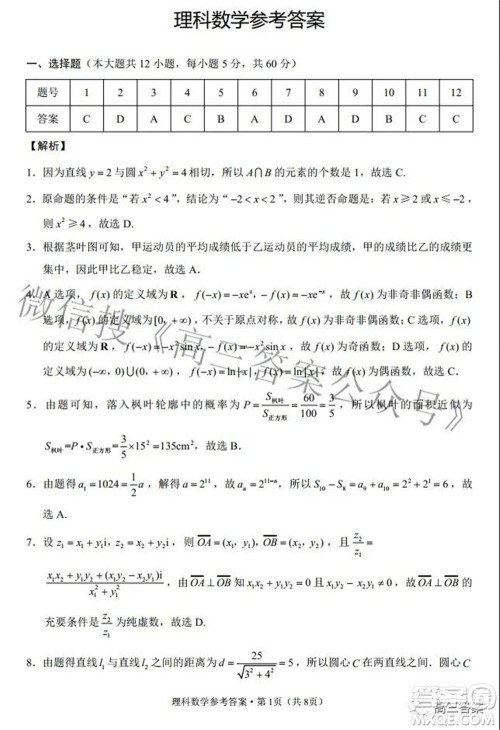 理科数学参考答案
一、选择题（本大题共 12 小题，每小题 5 分，共 60 分）
题号 1 2 3 4 5 6 7 8 9 10 11 12
答案 C D A C B A D C D A C C
【解析】
1．因为直线 y = 2 与圆 x² + y² = 4 相切，所以 A∩B 的元素的个数是 1，故选 C．
2．原命题的条件是“若 x² < 4”，结论为“−2 < x < 2”，则其逆否命题是：若 x ≥ 2 或 x ≤ −2，
则 x² ≥ 4，故选 D．
3．根据茎叶图可知，甲运动员的平均成绩低于乙运动员的平均成绩，甲的成绩比乙的成绩更
集中，因此甲比乙稳定，故选 A．
4．A 选项，f(x) 的定义域为 R，f(−x) = −xeˣ，−f(−x) = −xe⁻ˣ，故 f(x) 为非奇非偶函数；B
选项，f(x) 的定义域为[0，+∞)，不关于原点对称，故 f(x) 为非奇非偶函数；C 选项，f(x)
的定义域为 R，f(−x) = −x²sin x，−f(x) = −x²sin x，故 f(x) 为奇函数；D 选项，f(x) 的
定义域为(−∞，0)∪(0，+∞)，f(−x) = ln|x|，f(x) = ln|x|，
5．由题可知，落入枫叶轮廓中的概率为 P = S枫叶/S正方形 = 60/100 = 3/5，所以枫叶的面积近似为
S枫叶 = P·S正方形 = 3/5 × 15² = 135cm²，故选 B．
6．由题得 a₁ = 1024 = 1/2 a，解得 a = 2¹¹，故 aₙ = 2¹¹⁻ⁿ，所以 S₁₀ − S₈ = a₉ + a₁₀ = 2² + 2¹ = 6，故
选 A．
7．设 z₁ = x₁ + y₁i，z₂ = x₂ + y₂i，则 OA = (x₁，y₁)，OB = (x₂，y₂)，且 z₂/z₁ =
x₁x₂ + y₁y₂ + (x₁y₂ − x₂y₁)i / x₁² + y₁²，由 OA ⊥ OB 知 x₁x₂ + y₁y₂ = 0 且 x₁y₂ − x₂y₁ ≠ 0，故 OA ⊥ OB 的
充要条件是 z₂/z₁ 为纯虚数，故选 D．
8．由题得直线 l₁ 与直线 l₂ 之间的距离为 d = 25/√(3² + 4²) = 5，所以圆心 C 在两直线之间，
理科数学参考答案·第 1 页（共 8 页）
微信搜《高三答案公众号》
高三答案